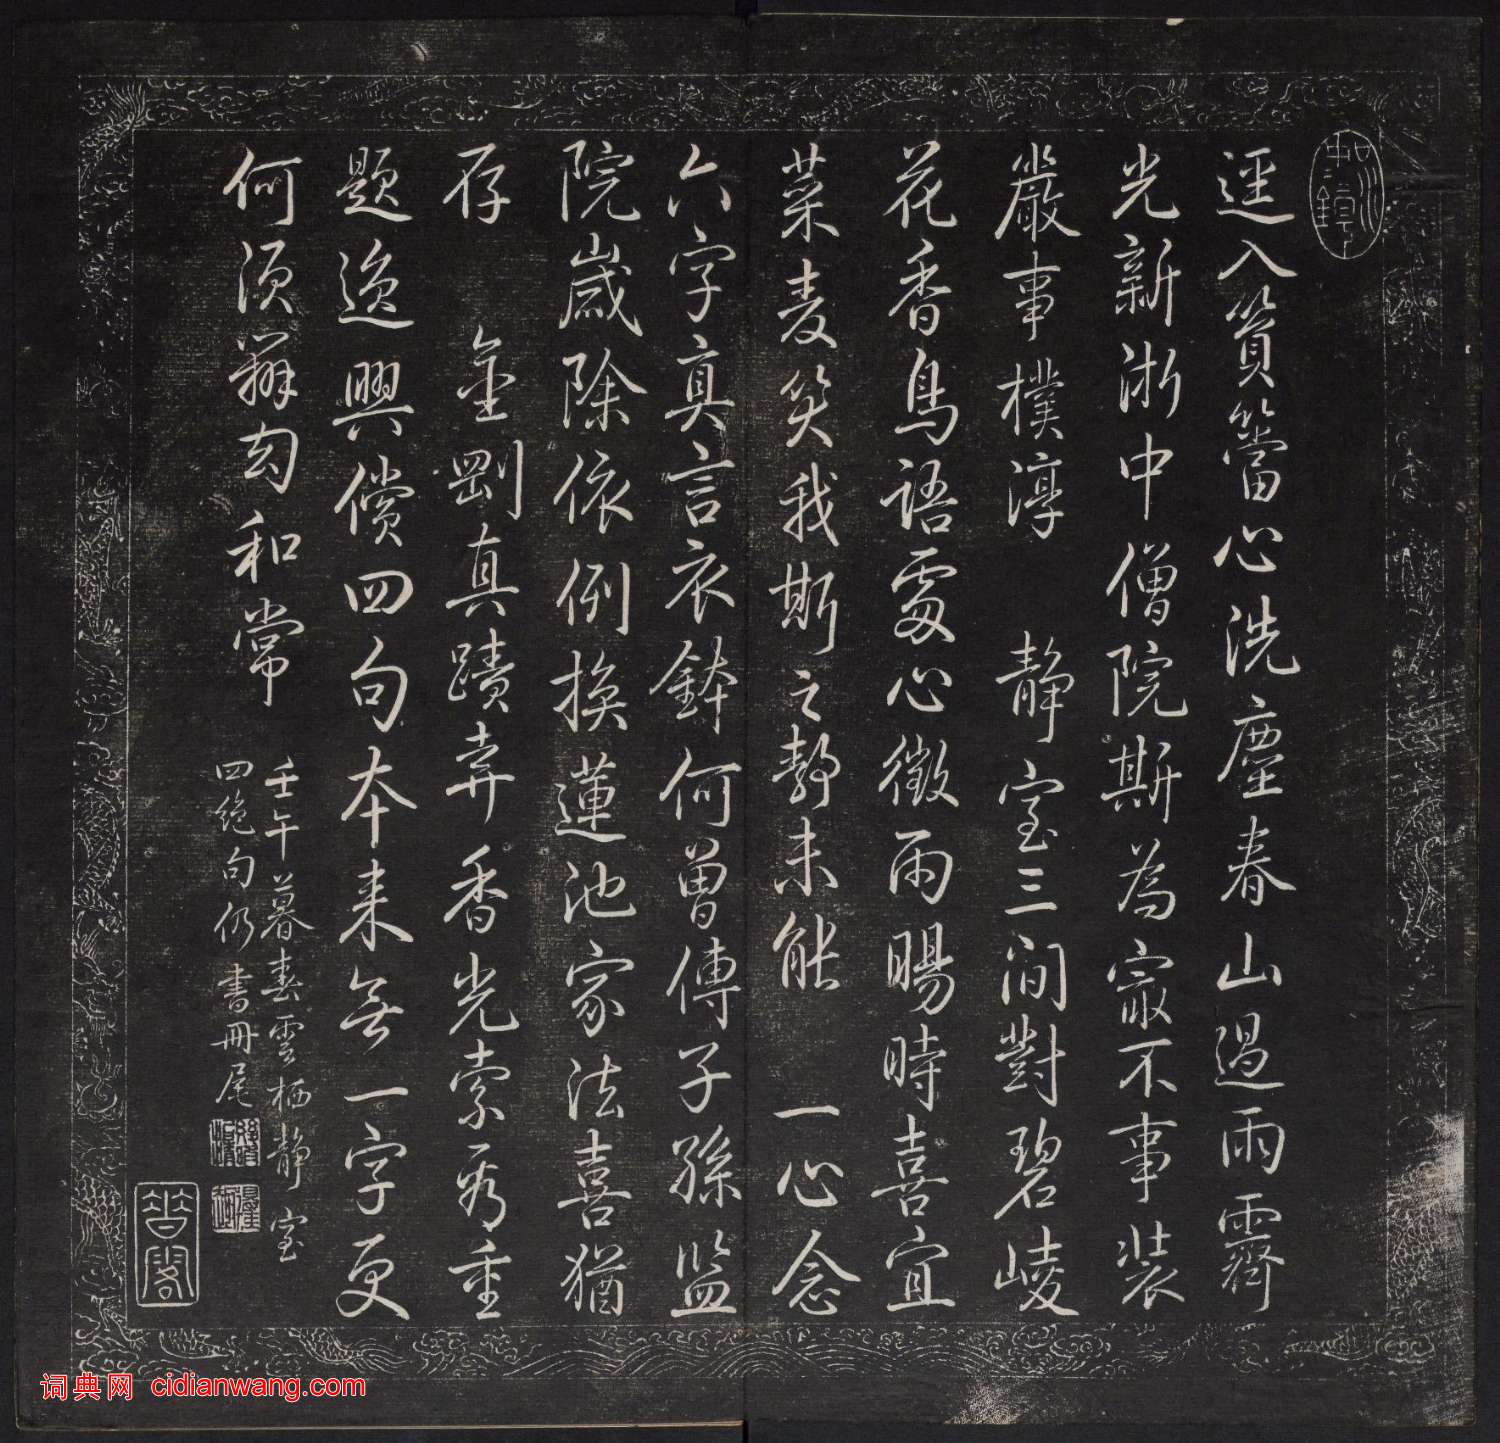 迳入篔簹心洗塵春山過雨霽
光新浙中僧院斯為㝡不事裝
嚴事樸淳　静室三間對碧崚
花香鳥語處心徵雨暘時喜宜
菜麦笑我斯之静未能　一心念
六字真言衣鉢何曾傳子孫監
院歲除依例換蓮池家法喜猶
存　金剛真蹟弆香光索為重
題逸興償四句本来無一字更
何須辨句和常
壬午暮春雲栖静室
四絶句仍書冊尾
词典网 cidianwang.com